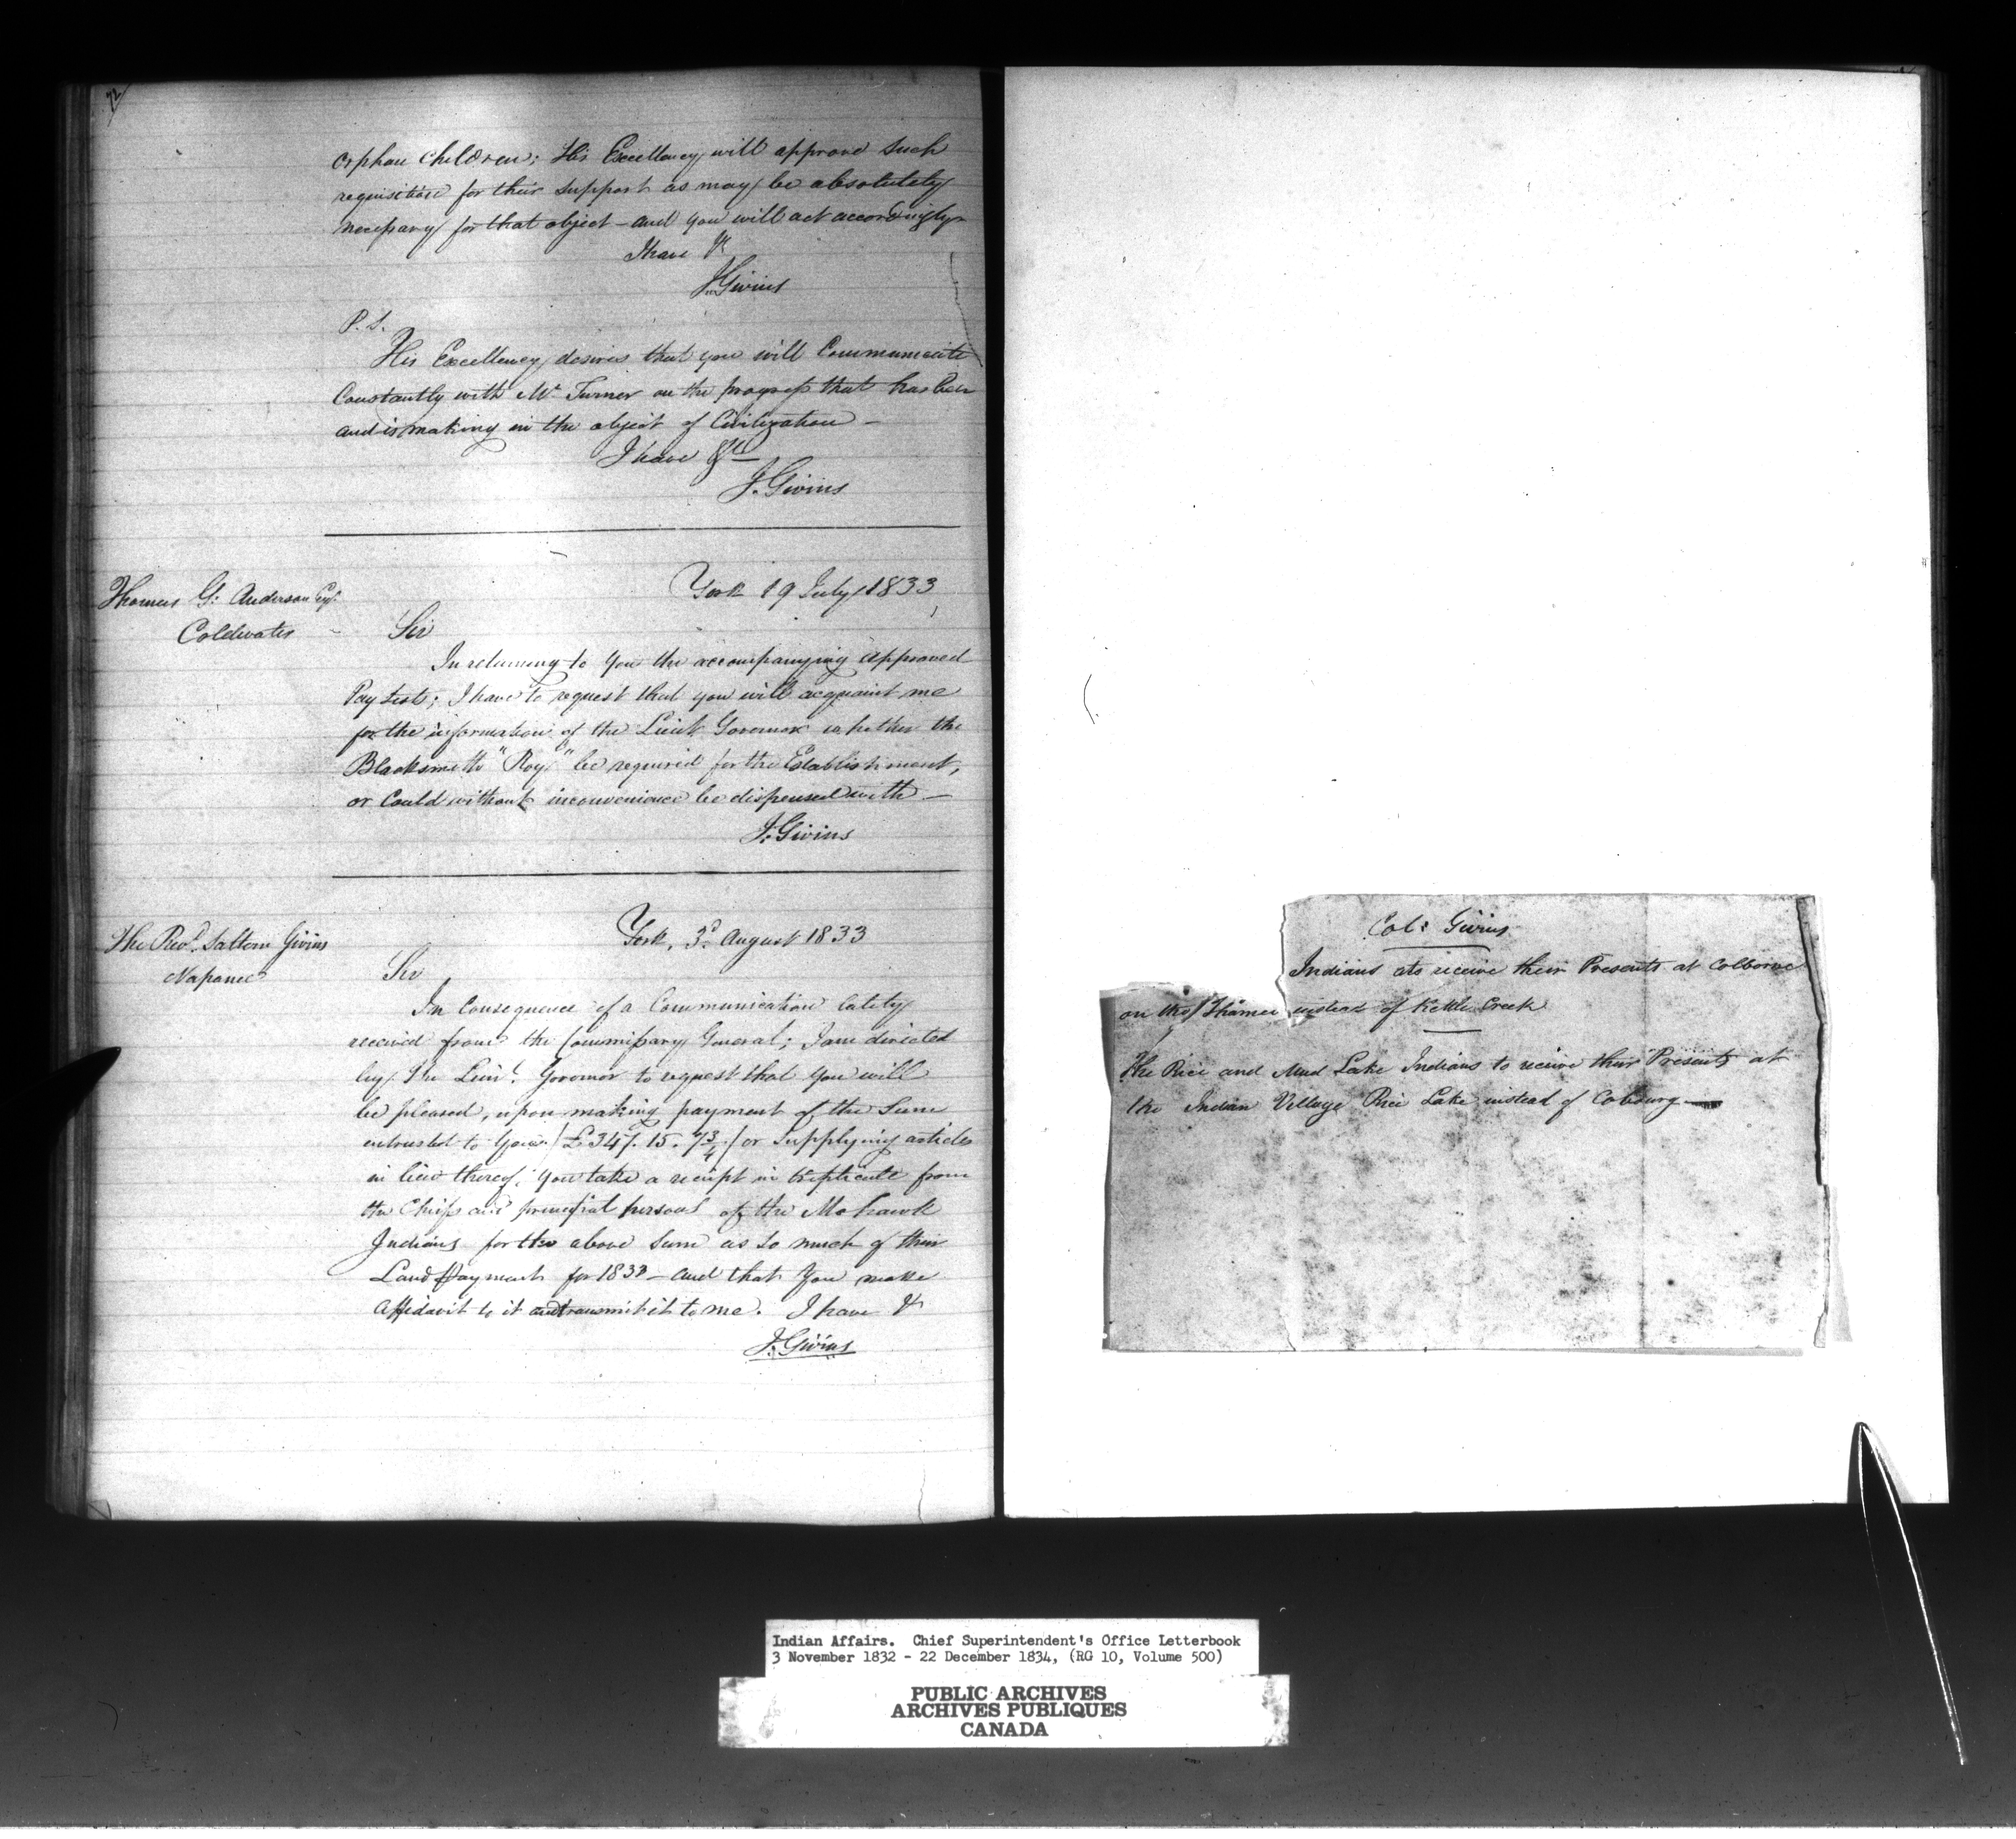 72
orphan children; His Excellency will approve such
requisition for their support as may be absolutely
necessary for that object – and you will act accordingly
I have &c
J. Givins
P.S.
His Excellency desires that you will Communicate
Constantly with Mr Turner on the progress that has been
and is making in the object of Civilization –
I have &c
J. Givins
Thomas G. Anderson Esqr
Coldwater
York 19 July 1833
Sir
In returning to you the accompanying approved
Pay Lists; I have to request that you will acquaint me
for the information of the Lieut Governor whether the
Blacksmith "Roy" be required for the Establishment,
or Could without inconvenience be dispensed with –
J. Givins
The Revd. Saltern Givins
Napanee
York, 3d August 1833
Sir
In Consequence of a Communication lately
received from the Commissary General; I am directed
by The Lieut. Governor to request that you will
be pleased, upon making payment of the Sum
entrusted to you (£347. 15. 7¾) or Supplying articles
in lieu thereof, you take a receipt in triplicate from
the Chiefs and principal persons of the Mohawk
Indians for the above Sum as so much of their
Land Payment for 1833 – and that You make
affidavit to it and transmit it to me. I have &c
J. Givins
Col: Givins
Indians to receive their Presents at Colborne
on the Thames instead of Kettle Creek
The Rice and Mud Lake Indians to receive their Presents at
the Indian Village Rice Lake instead of Cobourg
Indian Affairs. Chief Superintendent's Office Letterbook
3 November 1832 - 22 December 1834, (RG 10, Volume 500)
PUBLIC ARCHIVES
ARCHIVES PUBLIQUES
CANADA